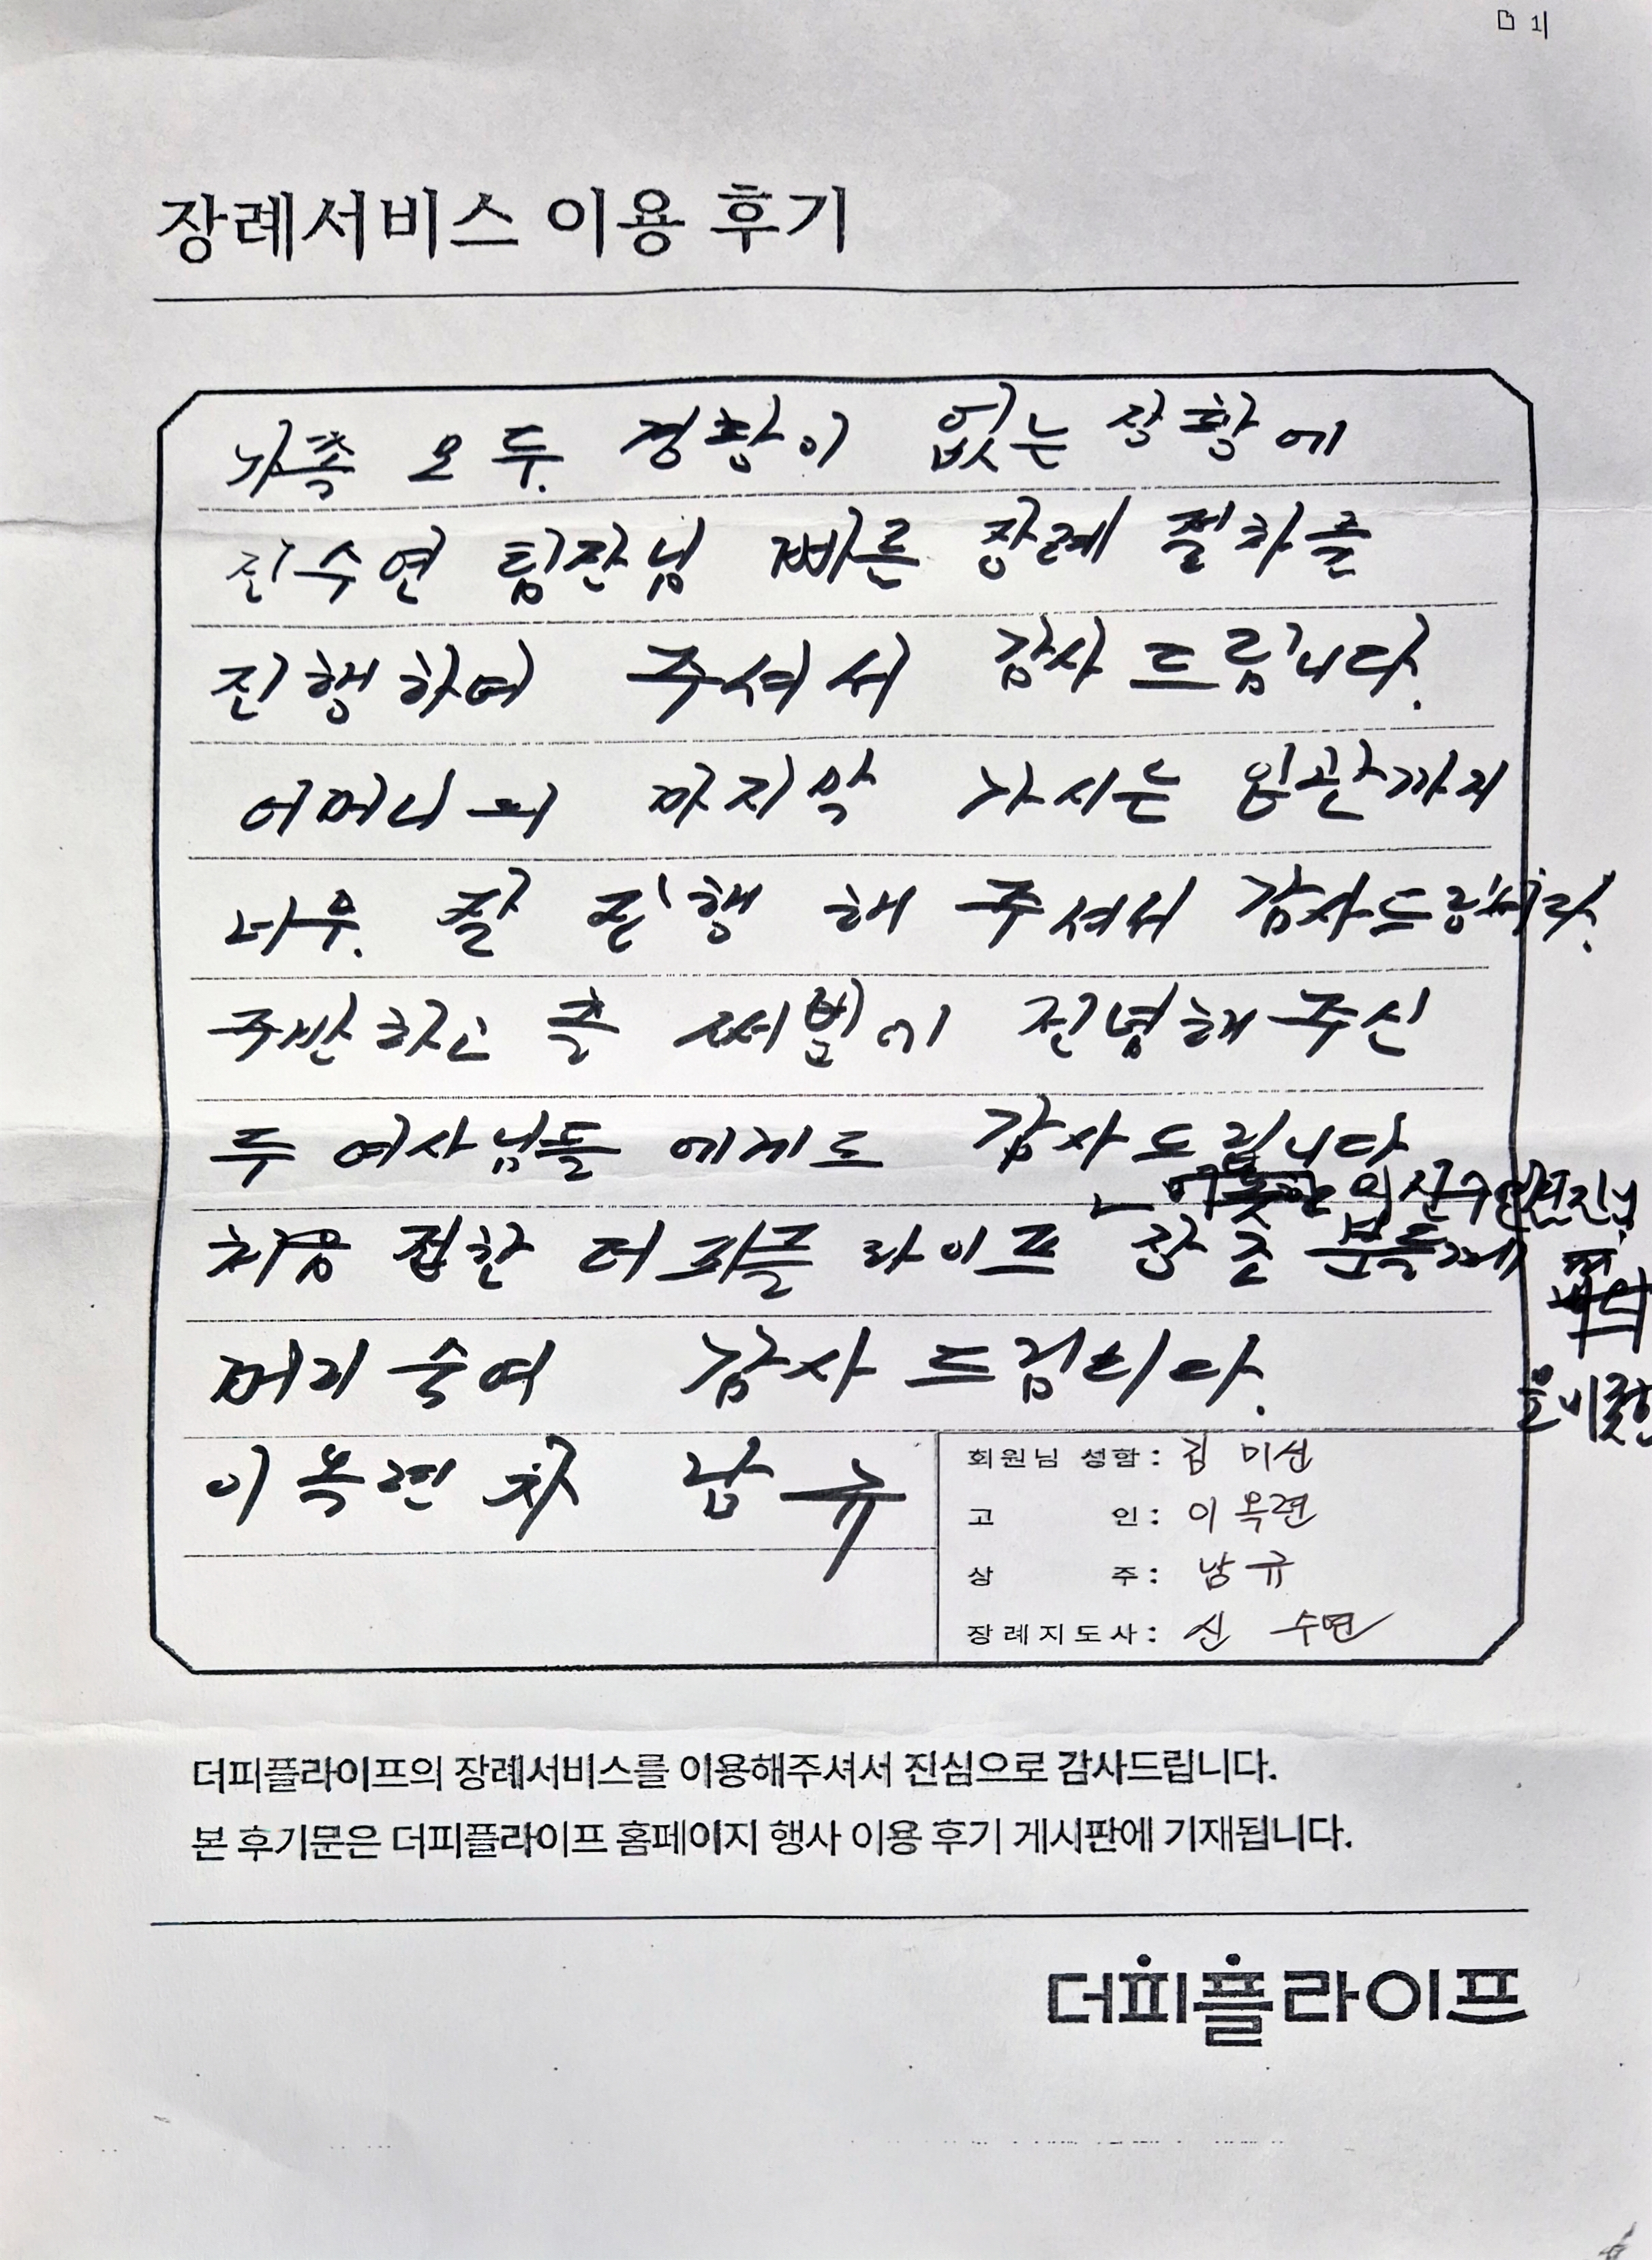 장례서비스 이용 후기
가족 모두 경황이 없는 상황에
진수연 팀장님 빠른 장례 절차를
진행하여 주셔서 감사 드립니다.
어머니의 마지막 가시는 입관까지
너무 잘 진행 해 주셔서 감사드립니다.
주방하고 진녕해 주신
두 여사님들 에게도 감사드립니다
처음 접한 더피플 라이프
머리 숙여 감사 드립니다.
이옥련 차 남규
회원님 성함 : 김 미선
고 인 : 이 옥련
상 주 : 남규
장례지도사 : 신 수연
더피플라이프의 장례서비스를 이용해주셔서 진심으로 감사드립니다.
본 후기문은 더피플라이프 홈페이지 행사 이용 후기 게시판에 기재됩니다.
더피플라이프